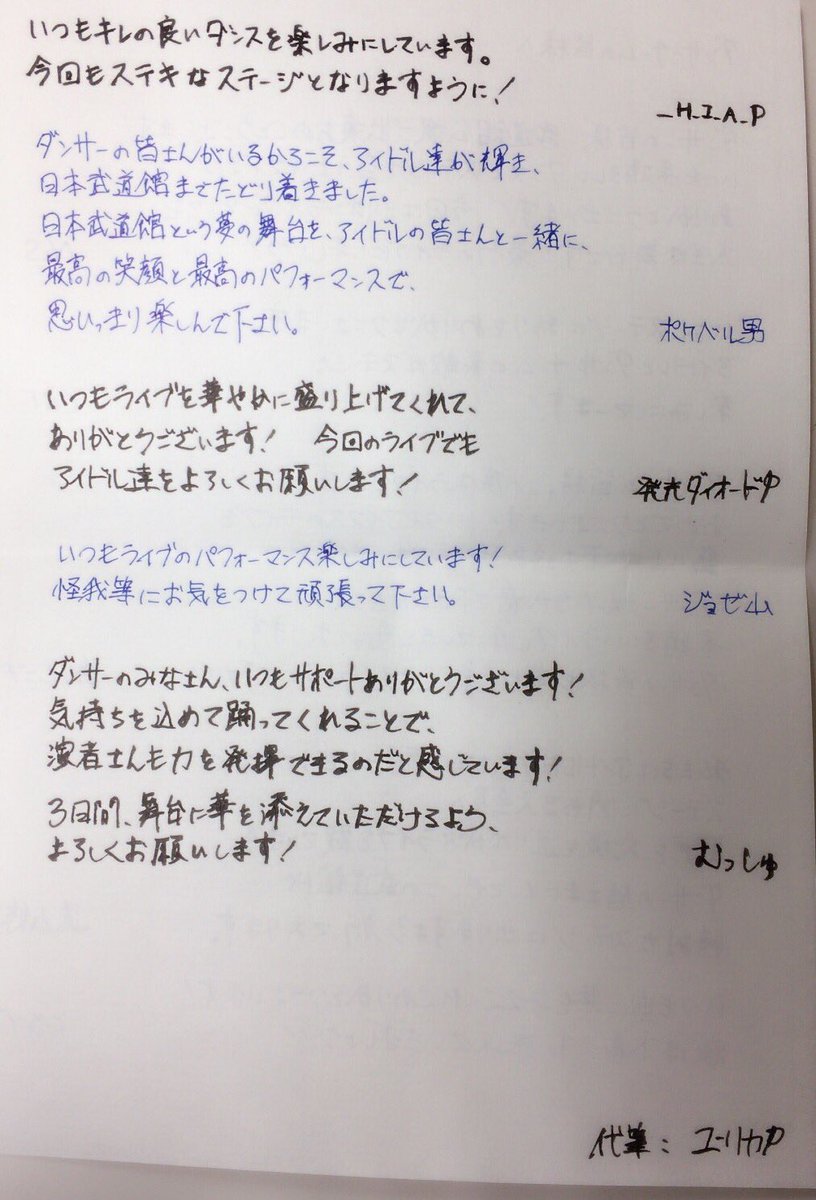 いつもキレの良いダンスを楽しみにしています。
今回もステキなステージとなりますように!
_H_I_A_P
ダンサーの皆さんがいるからこそ、アイドル達が輝き、
日本武道館までたどり着きました。
日本武道館という夢の舞台を、アイドルの皆さんと一緒に、
最高の笑顔と最高のパフォーマンスで、
思いっきり楽しんで下さい。
ポケベル男
いつもライブを華やかに盛り上げてくれて、
ありがとうございます! 今回のライブでも
アイドル達をよろしくお願いします!
発光ダイオードP
いつもライブのパフォーマンス楽しみにしています!
怪我等にお気をつけて頑張って下さい。
ジョゼ山
ダンサーのみなさん、いつもサポートありがとうございます!
気持ちを込めて踊ってくれることで、
演者さんも力を発揮できるのだと感じています!
3日間、舞台に華を添えていただけるよう、
よろしくお願いします!
むっしゅ
代筆: ユーリカP